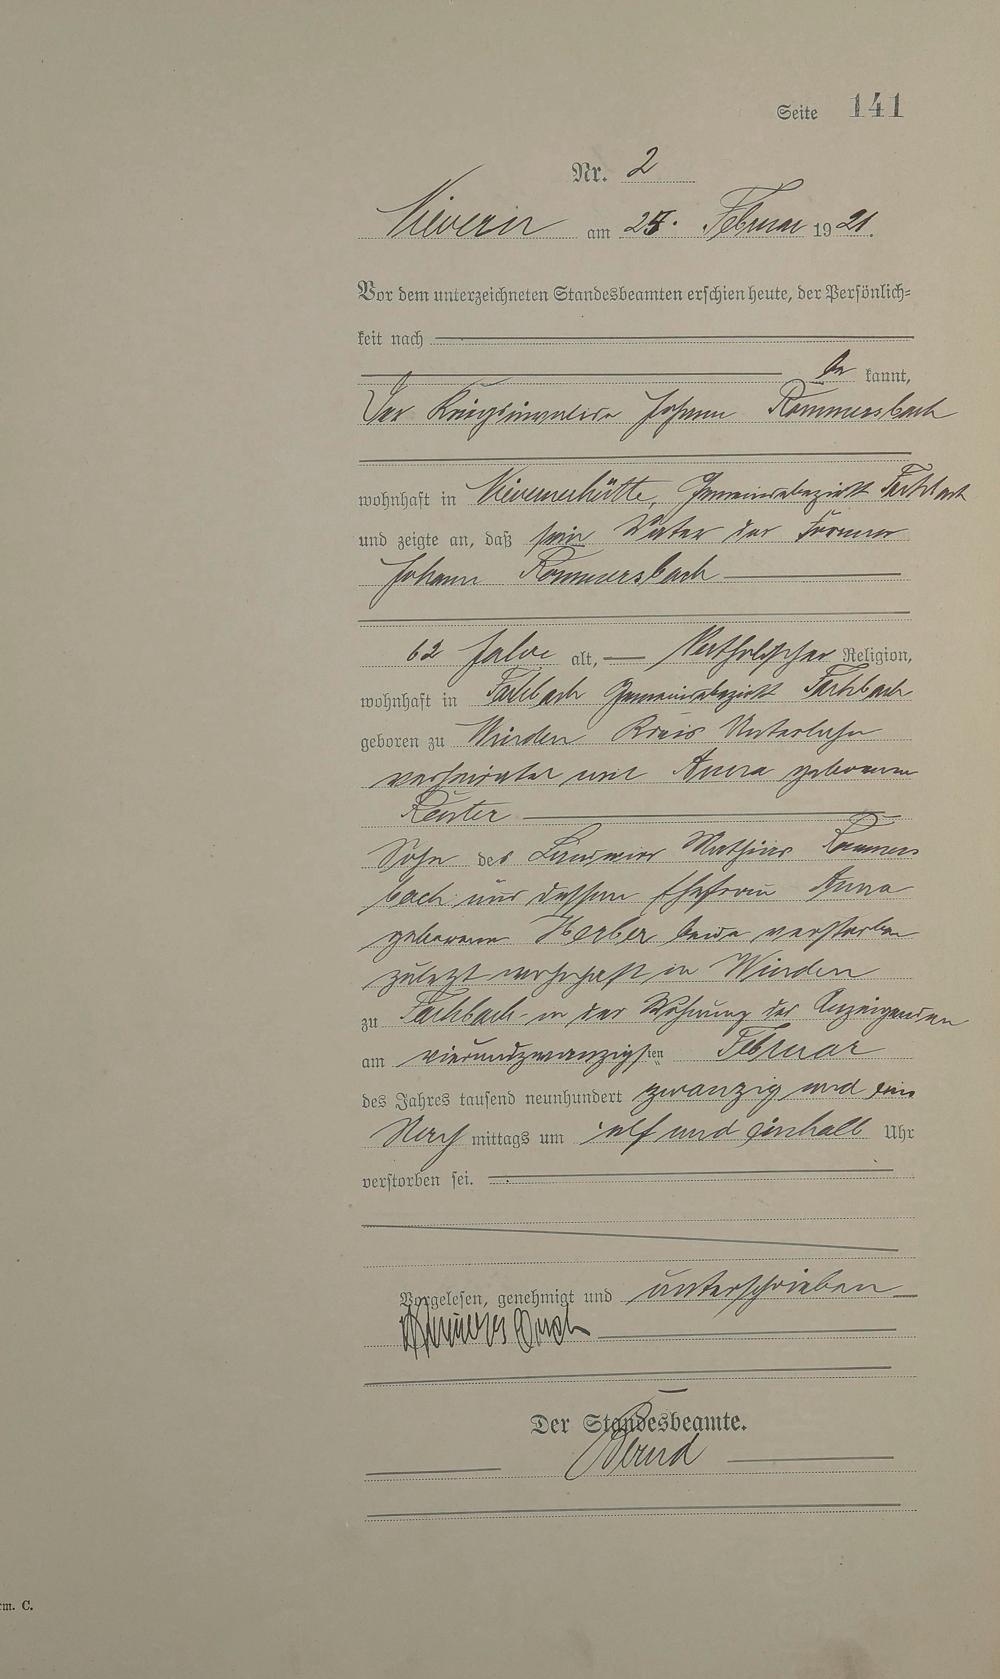 Seite 141
Nr. 2
Nievern am 25. Februar 1921.
Vor dem unterzeichneten Standesbeamten erschien heute, der Persönlich=
keit nach
be kannt,
Der Kriegsinvalide Johann Rommersbach
wohnhaft in Nievernerhütte, Gemeindebezirk Fachbach
und zeigte an, daß sein Vater der Former
Johann Rommersbach
62 Jahre alt, Katholischer Religion,
wohnhaft in Fachbach Gemeindebezirk Fachbach
geboren zu Winden Kreis Unterlahn
verheiratet mit Anna geborenen
Reuter
Sohn des Mathias Rommers
bach und dessen Ehefrau Anna
geborene Herber beide verstorben
zuletzt wohnhaft in Winden
zu Fachbach in der Wohnung des Anzeigenden
am vierundzwanzigsten Februar
des Jahres tausend neunhundert zwanzig und ein
Nach mittags um elf und einhalb Uhr
verstorben sei.
Vorgelesen, genehmigt und unterschrieben
Der Standesbeamte.
rm. C.